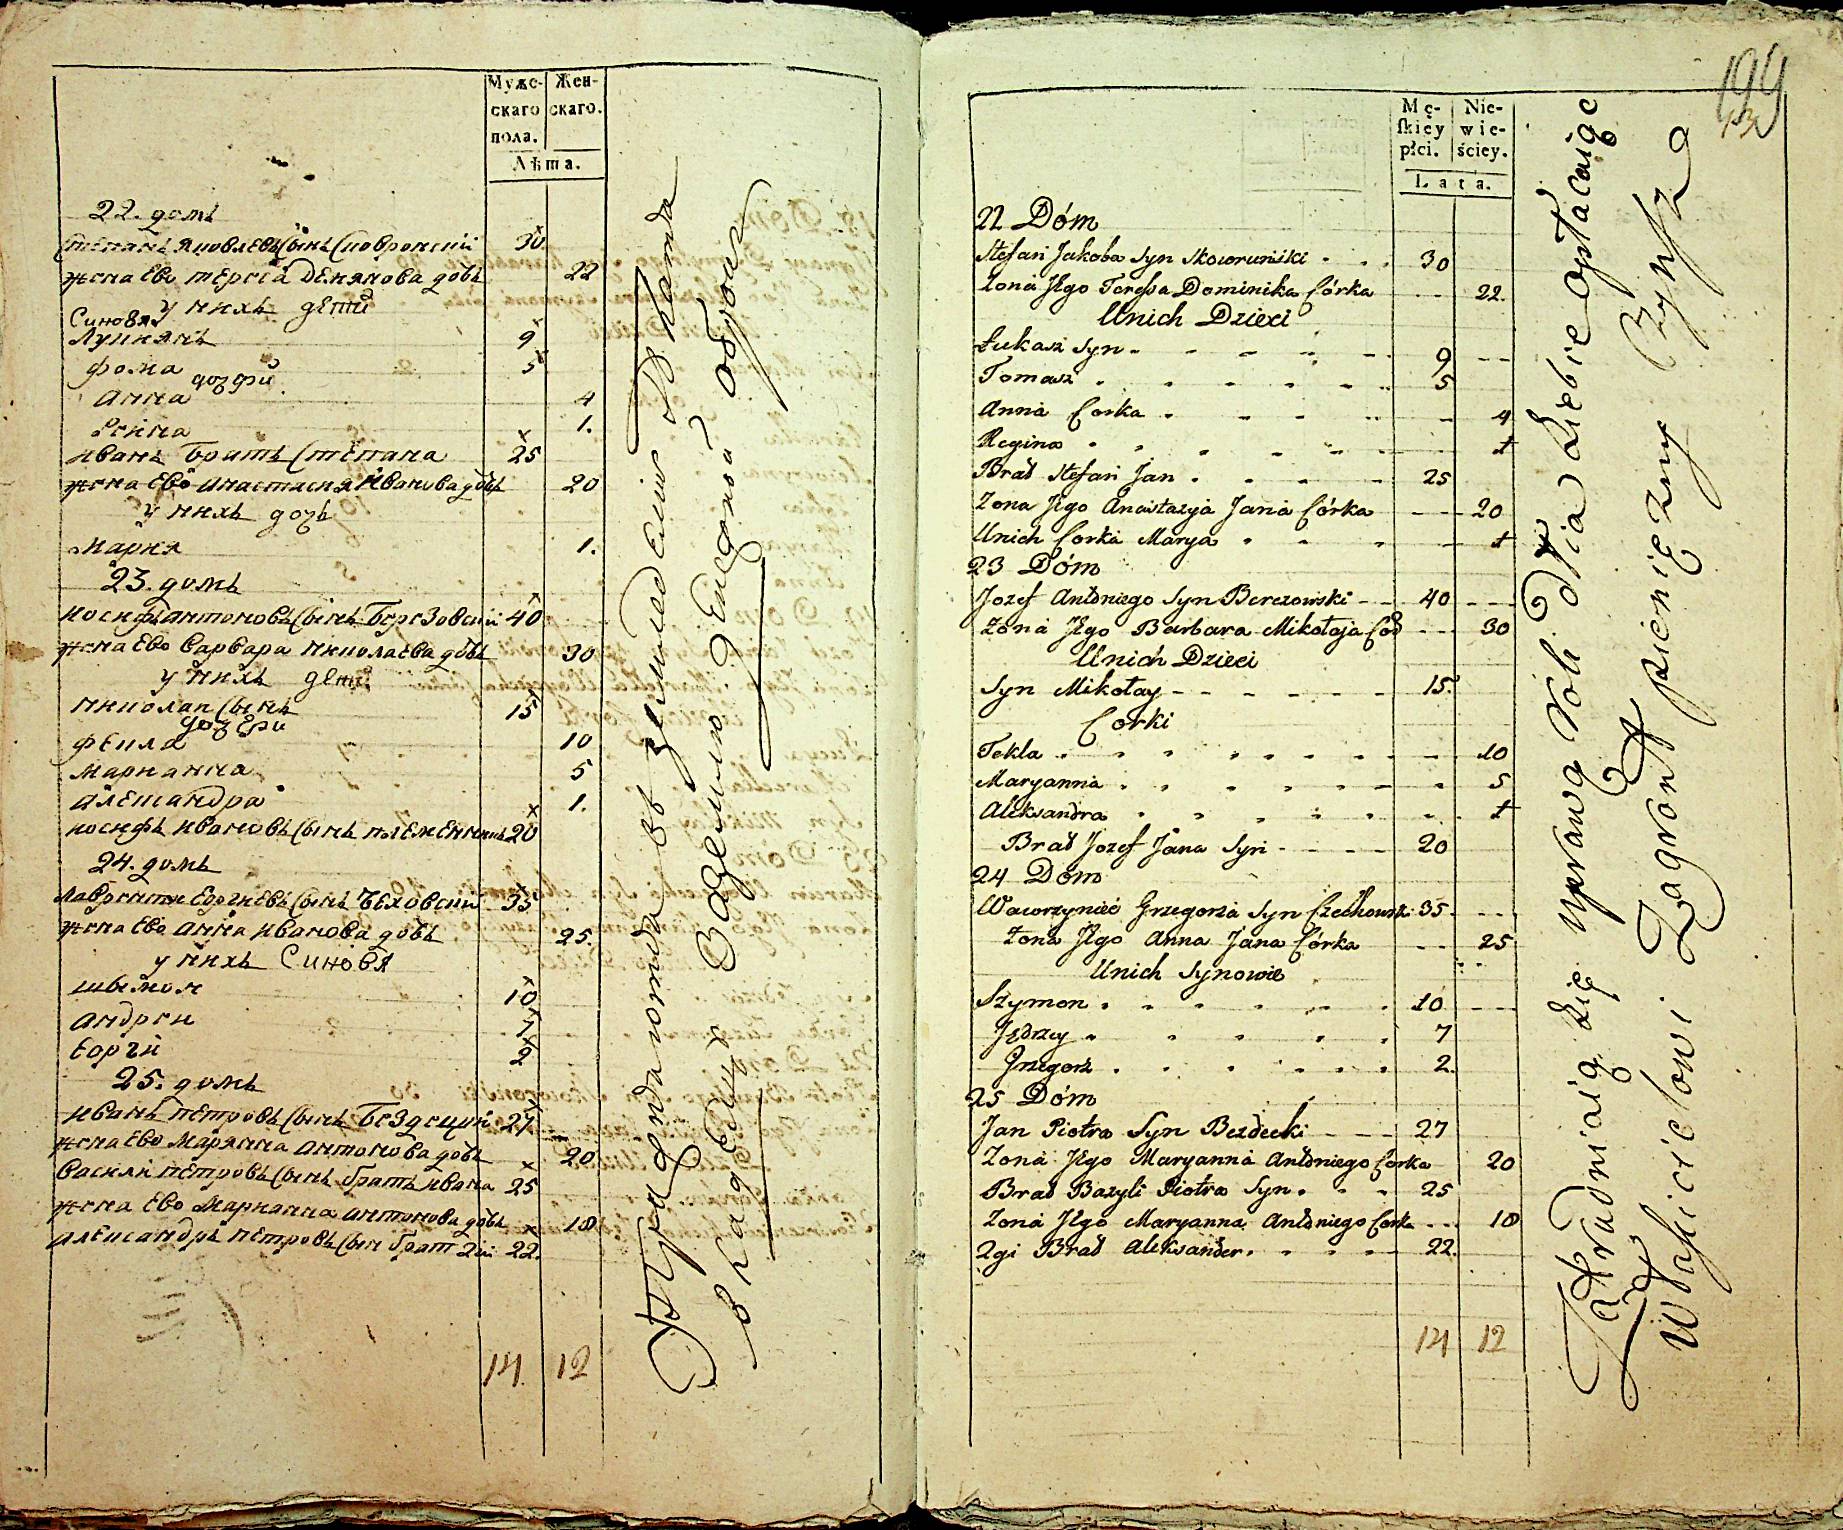 Мужс-
скаго
пола.
Жен-
скаго.
Лѣта.
22. домъ
Степанъ Яковлевъ Сынъ Сковронский 30
жена Ево Терега Денякова дочь 22
у нихъ дети
Синовя
Лукиянъ 9
Фома 5
дочери
Анна 4
Регина 1.
Иванъ Братъ Степана 25
жена Ево Анастасия Иванова дочь 20
у нихъ дочь
Мария 1.
23. домъ
Иосифъ Антоновъ Сынъ Березовский 40
жена Ево Варвара Николаева дочь 30
у нихъ дети
Николай Сынъ 15
дочери
Фекла 10
Марианна 5
Александра 1.
Иосифъ Ивановъ Сынъ племенникъ 20
24. домъ
Лаврентий Еоргиевъ Сынъ Чеховский 35
жена Ево Анна Иванова дочь 25.
у нихъ Синовя
Шымон 10
Андрей 7
Еорги 2
25. домъ
Иванъ Петровъ Сынъ Бездецкий 27
жена Ево Марянна Антонова дочь 20
Василий Петровъ Сынъ братъ Ивана 25
жена Ево Марианна Антонова дочь 18
Александръ Петровъ Сын брат 2й 22.
14 12
194
Mę-
skiey
płci.
Nie-
wie-
ściey.
Lata.
22 Dóm
Stefan Jakoba Syn Skowruński 30
Żona Jego Teressa Dominika Córka 22.
Unich Dzieci
Łukasz Syn 9
Tomasz 5
Anna Corka 4
Regina 1
Brat Stefan Jan 25
Zona Jego Anastazya Jana Córka 20
Unich Corka Marya 1
23 Dóm
Jozef Antoniego Syn Berezowski 40
Zona Jego Barbara Mikołaja Cór 30
Unich Dzieci
Syn Mikołay 15.
Corki
Tekla 10
Maryanna 5
Aleksandra 1
Brat Jozef Jana Syn 20
24 Dóm
Wawrzyniec Grzegorza Syn Czechowski 35
Żona Jego Anna Jana Córka 25
Unich Synowie
Szymon 10
Jędrzey 7
Grzegorz 2.
25 Dóm
Jan Piotra Syn Bezdecki 27
Zona Jego Maryanna Antoniego Corka 20
Brat Bazyli Piotra Syn 25
Zona Jego Maryanna Antoniego Corka 18
2gi Brat Aleksander 22.
14 12
Zatrudniaią się uprawą Roli Odnia Siebie opłacaiąc
Właścicielowi. Zagront pieniężny Czynsz